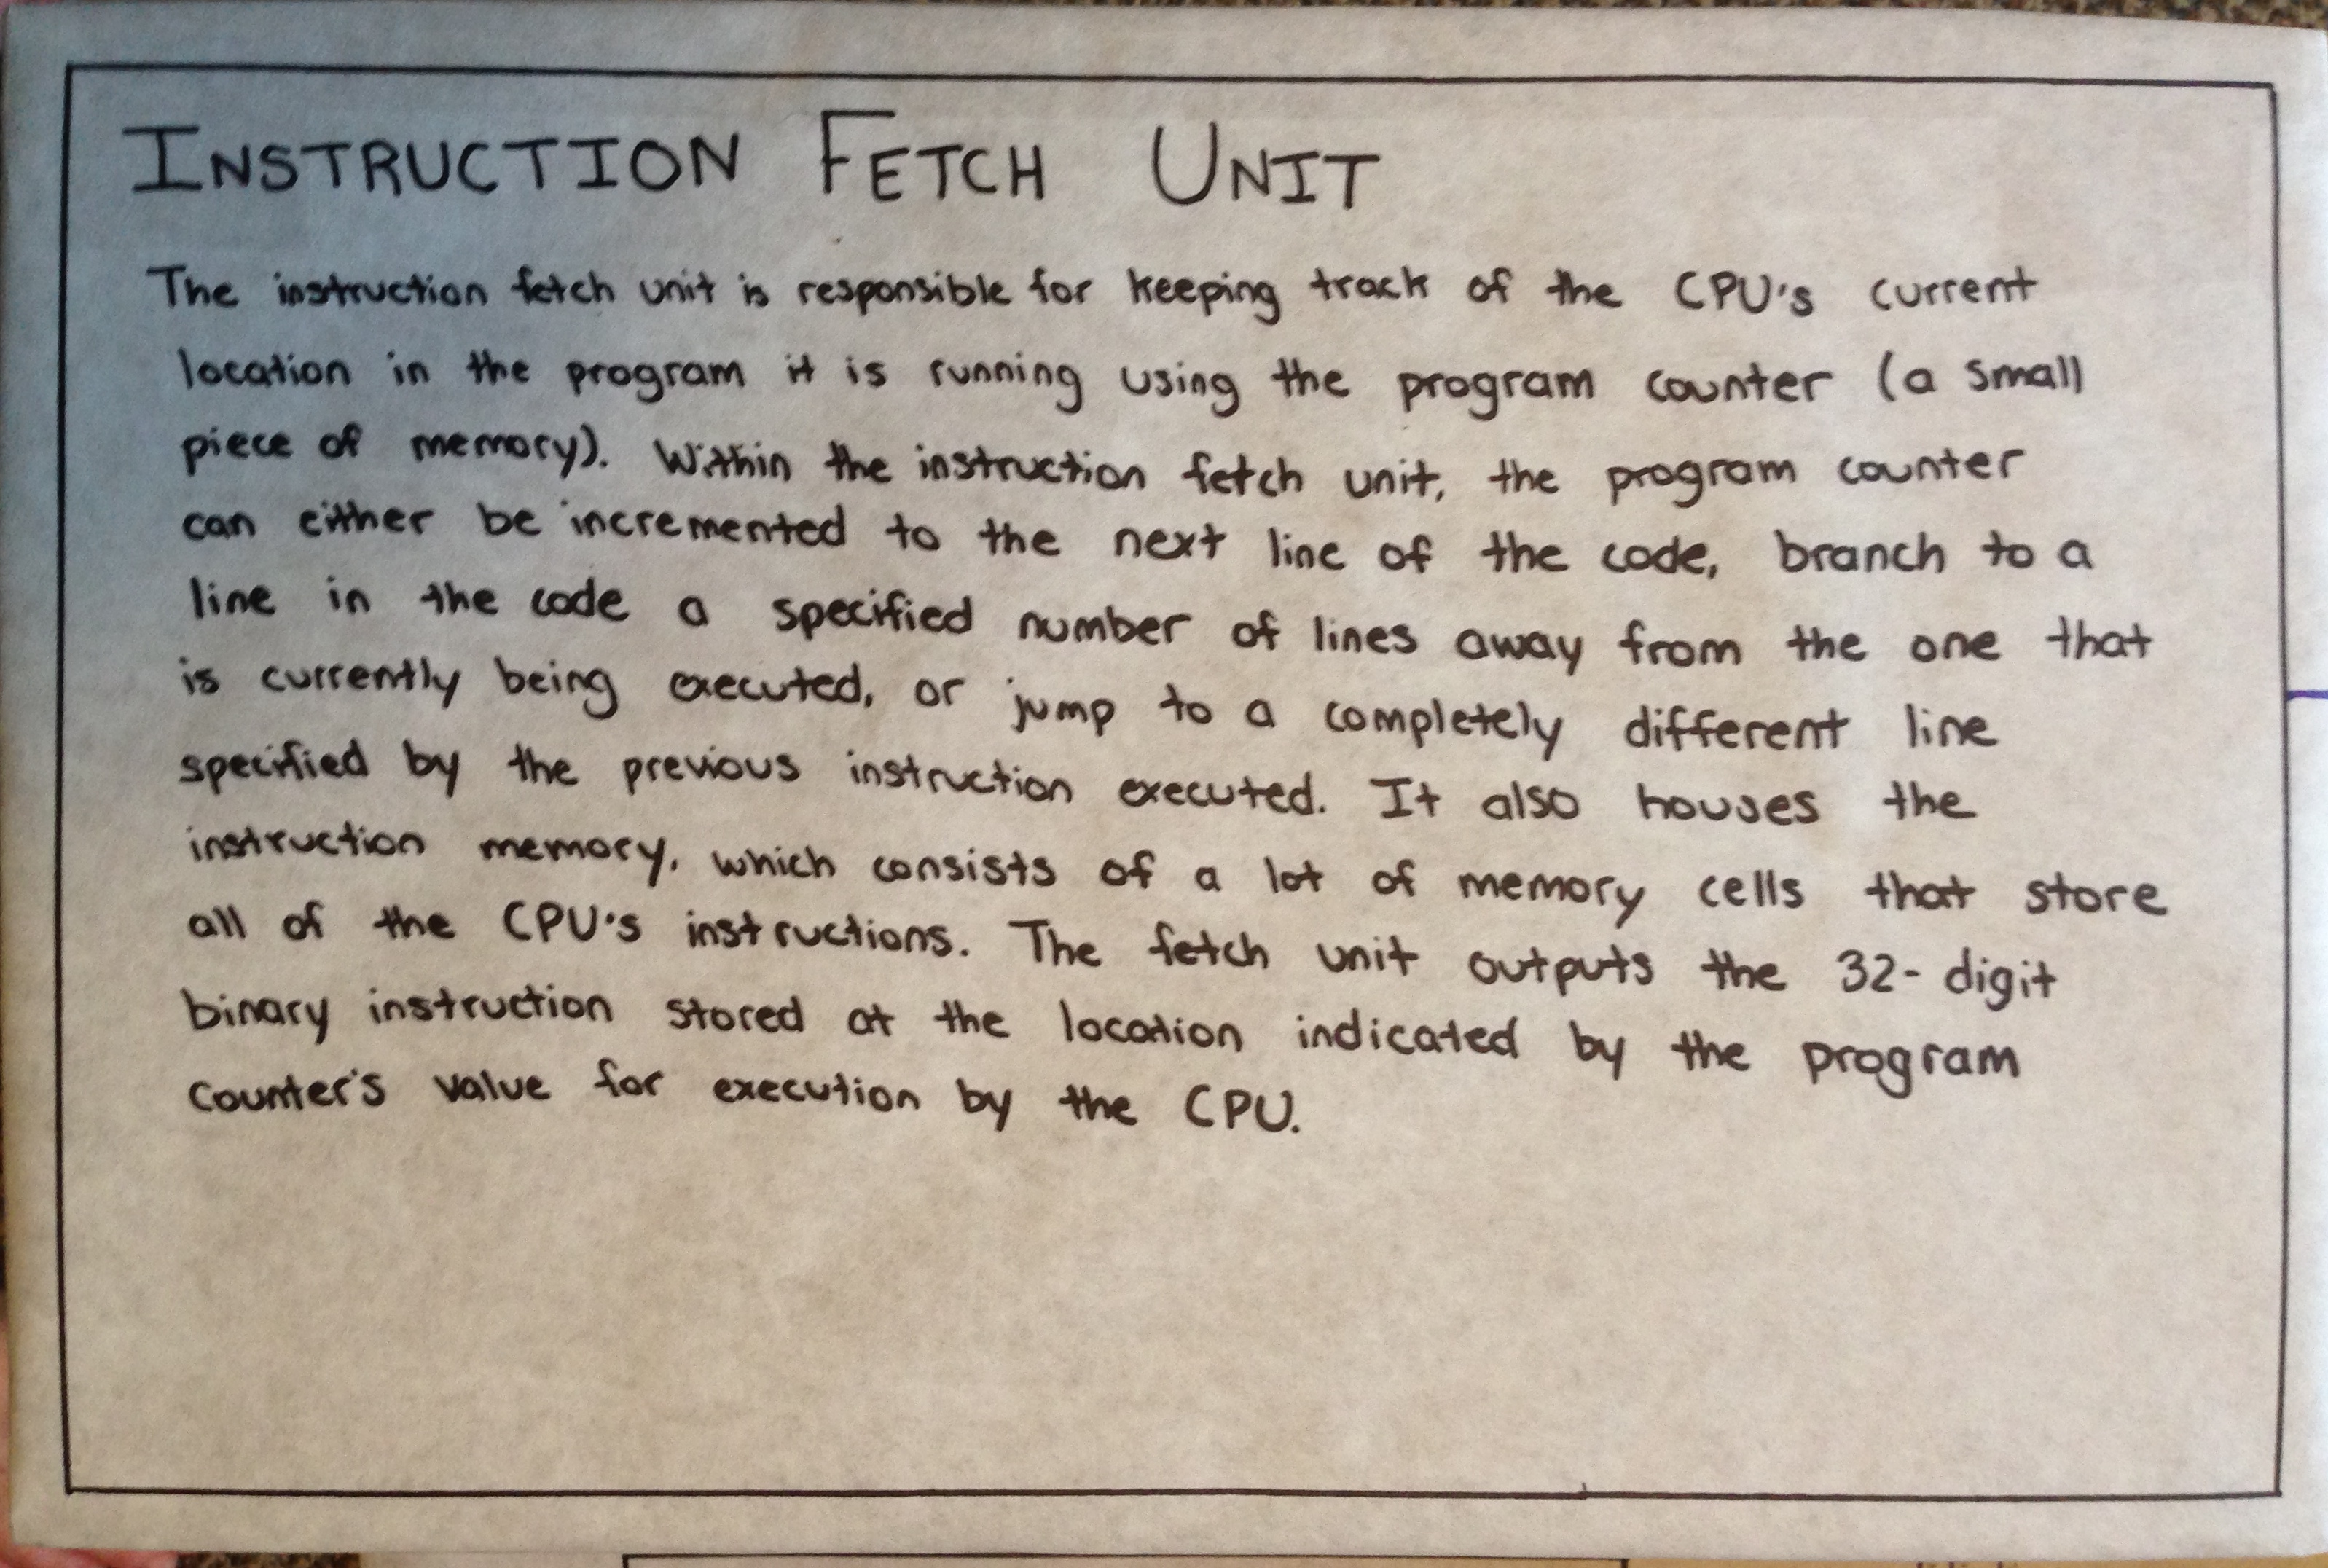 INSTRUCTION FETCH UNIT
The instruction fetch unit is responsible for keeping track of the CPU's current
location in the program it is running using the program counter (a small
piece of memory). Within the instruction fetch unit, the program counter
can either be incremented to the next line of the code, branch to a
line in the code a specified number of lines away from the one that
is currently being executed, or jump to a completely different line
specified by the previous instruction executed. It also houses the
instruction memory, which consists of a lot of memory cells that store
all of the CPU's instructions. The fetch unit outputs the 32-digit
binary instruction stored at the location indicated by the program
counter's value for execution by the CPU.